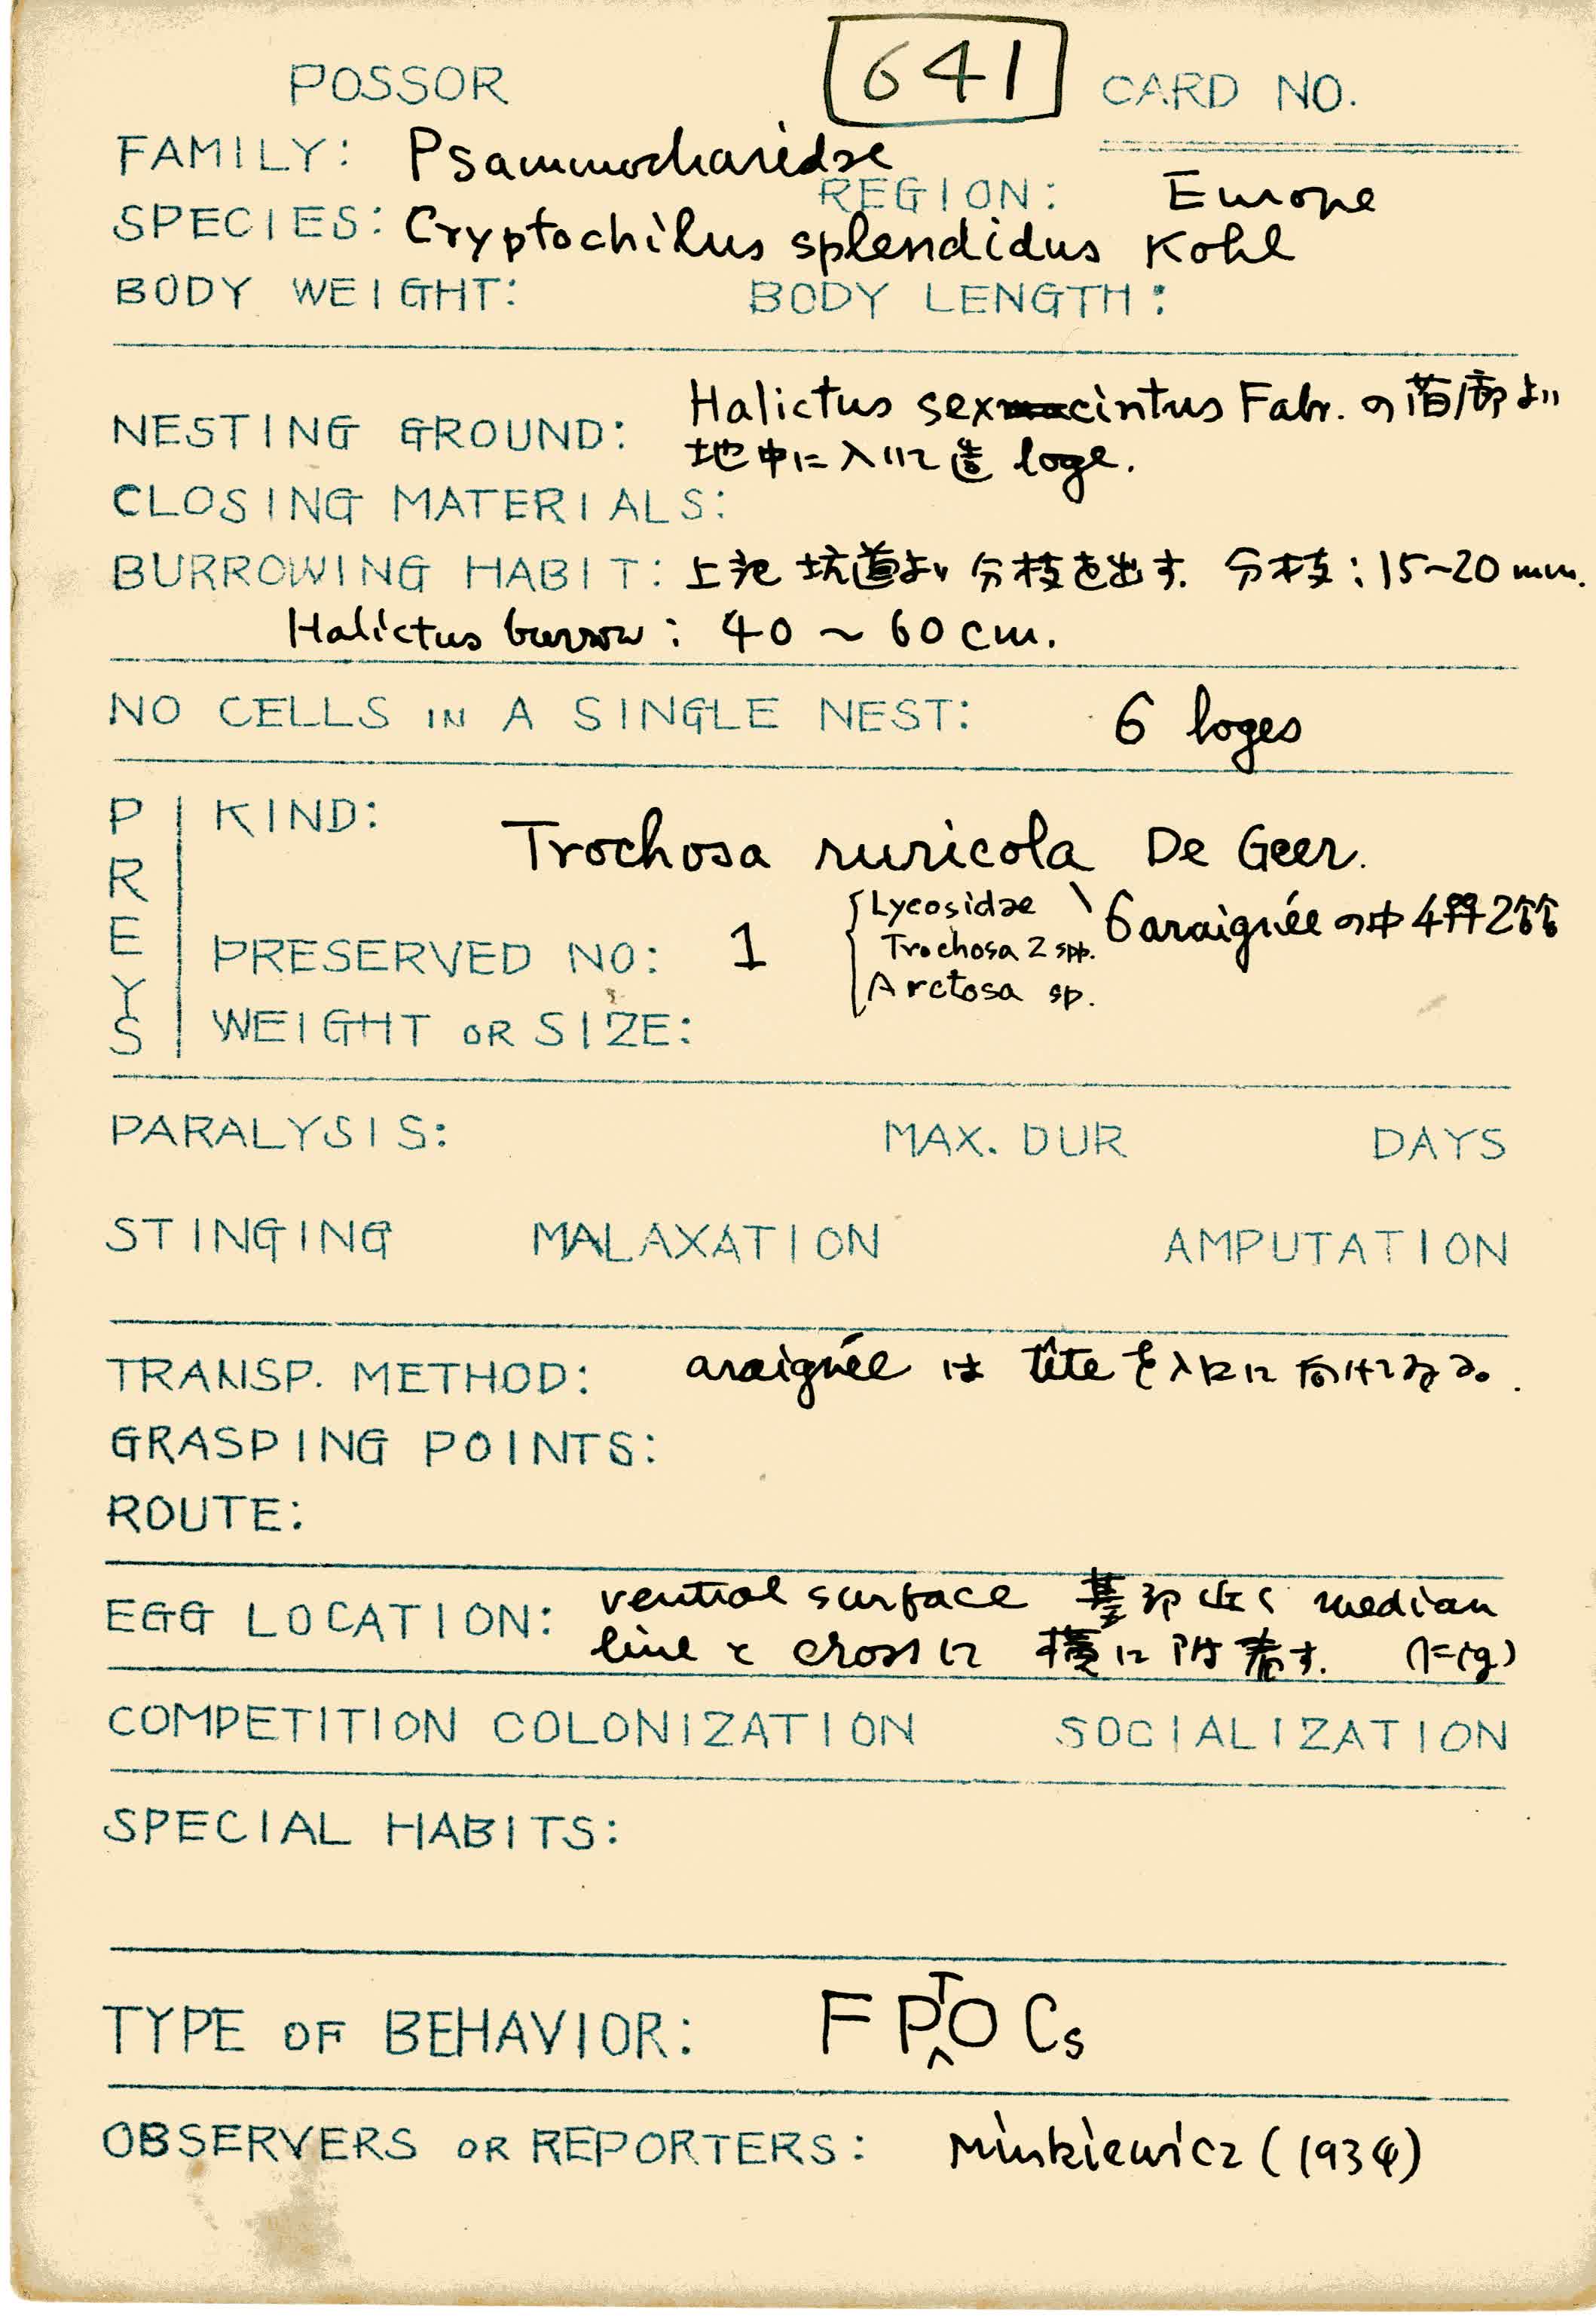 POSSOR 641 CARD NO.
FAMILY: Psammocharidae
REGION: Europe
SPECIES: Cryptochilus splendidus Kohl
BODY WEIGHT: BODY LENGTH:
Halictus sexcintus Fabr. の旧廊より
NESTING GROUND: 地中に入りて造 loge.
CLOSING MATERIALS:
BURROWING HABIT: 上記坑道より分枝を出す. 分枝: 15~20 mm.
Halictus burrow: 40 ~ 60 cm.
NO CELLS IN A SINGLE NEST: 6 loges
PREYS
KIND: Trochosa ruricola De Geer.
PRESERVED NO: 1
Lycosidae
Trochosa 2 spp.
Arctosa sp.
6 araignée の中 4 2
WEIGHT OR SIZE:
PARALYSIS: MAX. DUR DAYS
STINGING MALAXATION AMPUTATION
TRANSP. METHOD: araignée は tête を入口に向けてゐる.
GRASPING POINTS:
ROUTE:
EGG LOCATION: ventral surface 基部近く median
line と cross に 横に附着す. (Fig)
COMPETITION COLONIZATION SOCIALIZATION
SPECIAL HABITS:
TYPE OF BEHAVIOR: F P^TO Cs
OBSERVERS OR REPORTERS: Minkiewicz (1934)